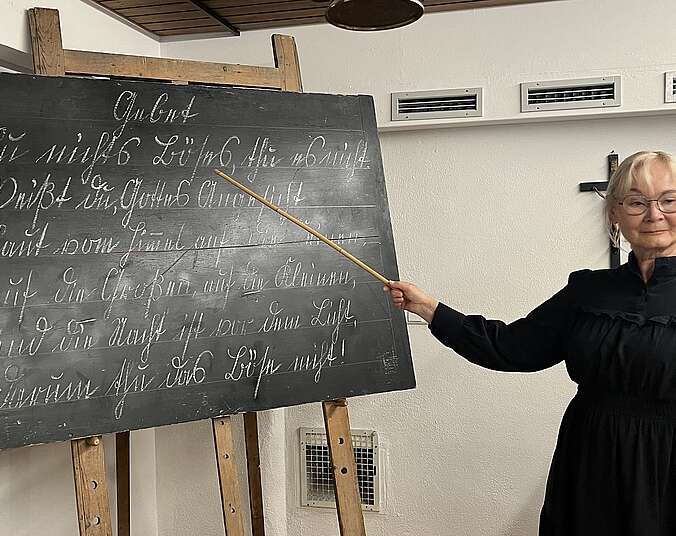 Gebet
Tu nichts Böses, thu es nicht.
Weißt du, Gottes Angesicht
aut vom Himmel auf die
Auf die Großen, auf die Kleinen,
Und die Nacht ist vor dem Licht,
Darum thu das Böse nicht!